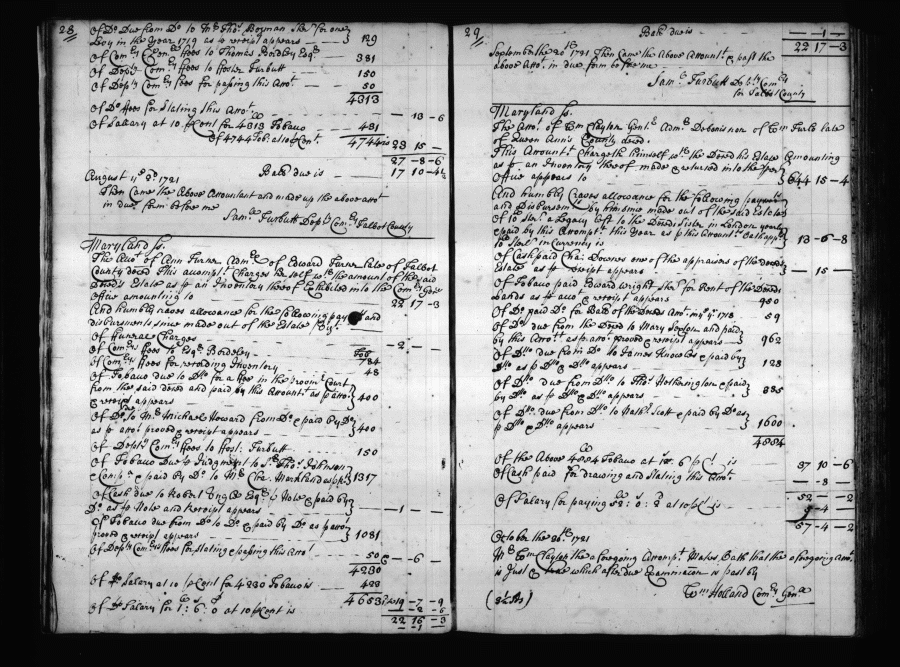 28
Of Do Due from Do to Mr Thos Bozman Sher for one
Levy in the Year 1719 as p receipt appears — } 129
Of Comry Genl ffees to Thomas Bordley Esqr 381
Of Depty Comry ffees to ffoster Turbutt — 150
Of Depty Comry ffees for passing this Accot — 50
4313
Of Do ffees for Stating this Accot — 13 — 6
Of Salary at 10 p Cent for 4313 Tobacco 431
Of 4744 Tob. at 10 p Cent 4744 is 23 15 —
27 — 8 — 6
Bath due is 17 10
August 1721
Then Came the Above Accountant and made up the above accot
in due form before me
Sam Turbutt Depty Comry Talbot County
Maryland ss.
The Accot of Ann Turner Admx of Edward Turner late of Talbot
County deced This accomptt Charges her self wth the amount of the said
Deced's Estate as p an Inventory thereof Exhibited into the Comry Genls
Office amounting to 22 17 — 3
And humbly craves allowance for the following paymts and
disbursments since made out of the Estate Vizt
Of Funeral Charges — 2 —
Of Comry ffees to Esqr Bordley — Tob 784
Of Comry ffees for recording Inventory 48
Of Tobacco due to Do for a fee in the provincl Court
from the said deced and paid by this Accountt as p accot } 400
& receipt appears —
Of Do to Mr Michael Howard from Do & paid by Do
as p accot proved & receipt appears — } 400
Of Depty Comry ffees to ffostr Turbutt — 150
Of Tobacco Due p Judgment to Thos Johnson
Comp & paid by Do to Mr Cha. Markland as p } 1317
Of Cash due to Robert Esqr p Note & paid by
Do as p Note and Receipt appears } — 1 — —
Of Tobacco due from Do to Do & paid by Do as p accot
proved & receipt appears } 1081
Of Depty Comrys ffees for stating & passing this Accot 50 & — 6 —
4230
Of Salary at 10 p Cent for 4230 Tobacco is — 423
4653 19 — 7 — 9
Of Salary for 1: 6: 0 at 10 p Cent is — 2 — 6
22 16 — 3
— 1 —
29
Bath due is — 1 —
22 17 — 3
September the 20th 1721 Then Came the Above Accountt & past the
above Accot in due form before me
Sam Turbutt Depty Comry
for Talbot County
Maryland ss.
The Accot of Wm Clayton Gentn Admr Debonis non of Wm Turlo late
of Queen Ann's County deced.
This Accomptt Chargeth himself wth the Deced his Estate Amounting
as p an Inventory thereof made & returned into the
Office appears to } 644 15 — 4
And humbly Craves allowance for the following payments
and Disbursmts by him since made out of the said Estate
Of to a Legacy left to the Deced's Sister in London yearly
& paid by this Accomptt this Year as p this Accountts Oath app
to in Currency is } 13 — 6 — 8
Of Cash paid Cha: Downes one of the appraisers of the deced's
Estate as p receipt appears — } — 15 —
Of Tobacco paid Edward Wright Sher for Rent of the Deced's
Lands as p accot & receipt appears 950
Of Do paid Do for Bal of the Deced's Accot 1718 59
Of Do due from the Deced to Mary and paid
by this Accott as p accot proved & receipt appears — } 962
Of Ditto due from Do to James Knowles & paid by
Do as p Do & Do appears — } 128
Of Ditto due from Ditto to Thos Hetherington & paid
by Do as p Do & Do appears } 885
Of Ditto due from Ditto to Nathl Scott & paid by Do as
p Ditto & Ditto appears } 1600
4584
Of the Above 4584 Tobacco at p Ct is — 37 10 — 6
Of Cash paid for drawing and stating this Accot. — 8 —
52 — — 2
Of Salary for paying 52: 0: 2 at 10 p Ct is — 4 —
57 — 4 — 2
October the 26th 1721
Mr Wm Clayton the aforegoing Accomptt Makes Oath that the aforegoing accot
is Just & true which after due Examination is past by
Wm Holland Comry Genl